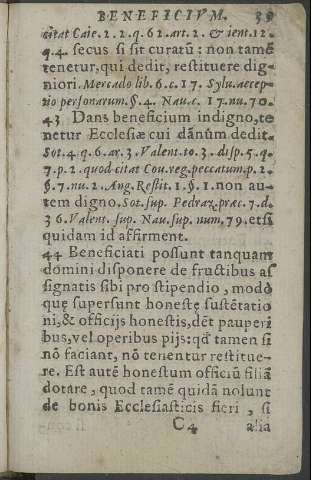 BENEFICIVM. 39
citat Caie. 2. 2. q. 62. art. 2. & ient. 12.
q. 4. secus si sit curatũ: non tamẽ
tenetur, qui dedit, restituere dig-
niori. Mercado lib. 6. c. 17. Sylu. accep-
tio personarum. §. 4. Nau. c. 17. nu. 70.
43 Dans beneficium indigno, te
netur Ecclesiæ cui dãnũm dedit.
Sot. 4. q. 6. ar. 3. Valent. to. 3. disp. 5. q.
7. p. 2. quod citat Cou. reg. peccatum. p. 2.
§. 7. nu. 2. Ang. Restit. 1. §. 1. non au-
tem digno. Sot. sup. Pedraz. præc. 7. d.
36. Valent. sup. Nau. sup. num. 79. etsi
quidam id affirment.
44 Beneficiati possunt tanquam
domini disponere de fructibus as
signatis sibi pro stipendio, modò
quę supersunt honestę sustẽtatio
ni, & officijs honestis, dẽt pauperi
bus, vel operibus pijs: qđ tamen si
nõ faciant, nõ tenentur restitue-
re. Est autẽ honestum officiũ filiã
dotare, quod tamẽ quidã nolunt
de bonis Ecclesiasticis fieri, si
C4 alia